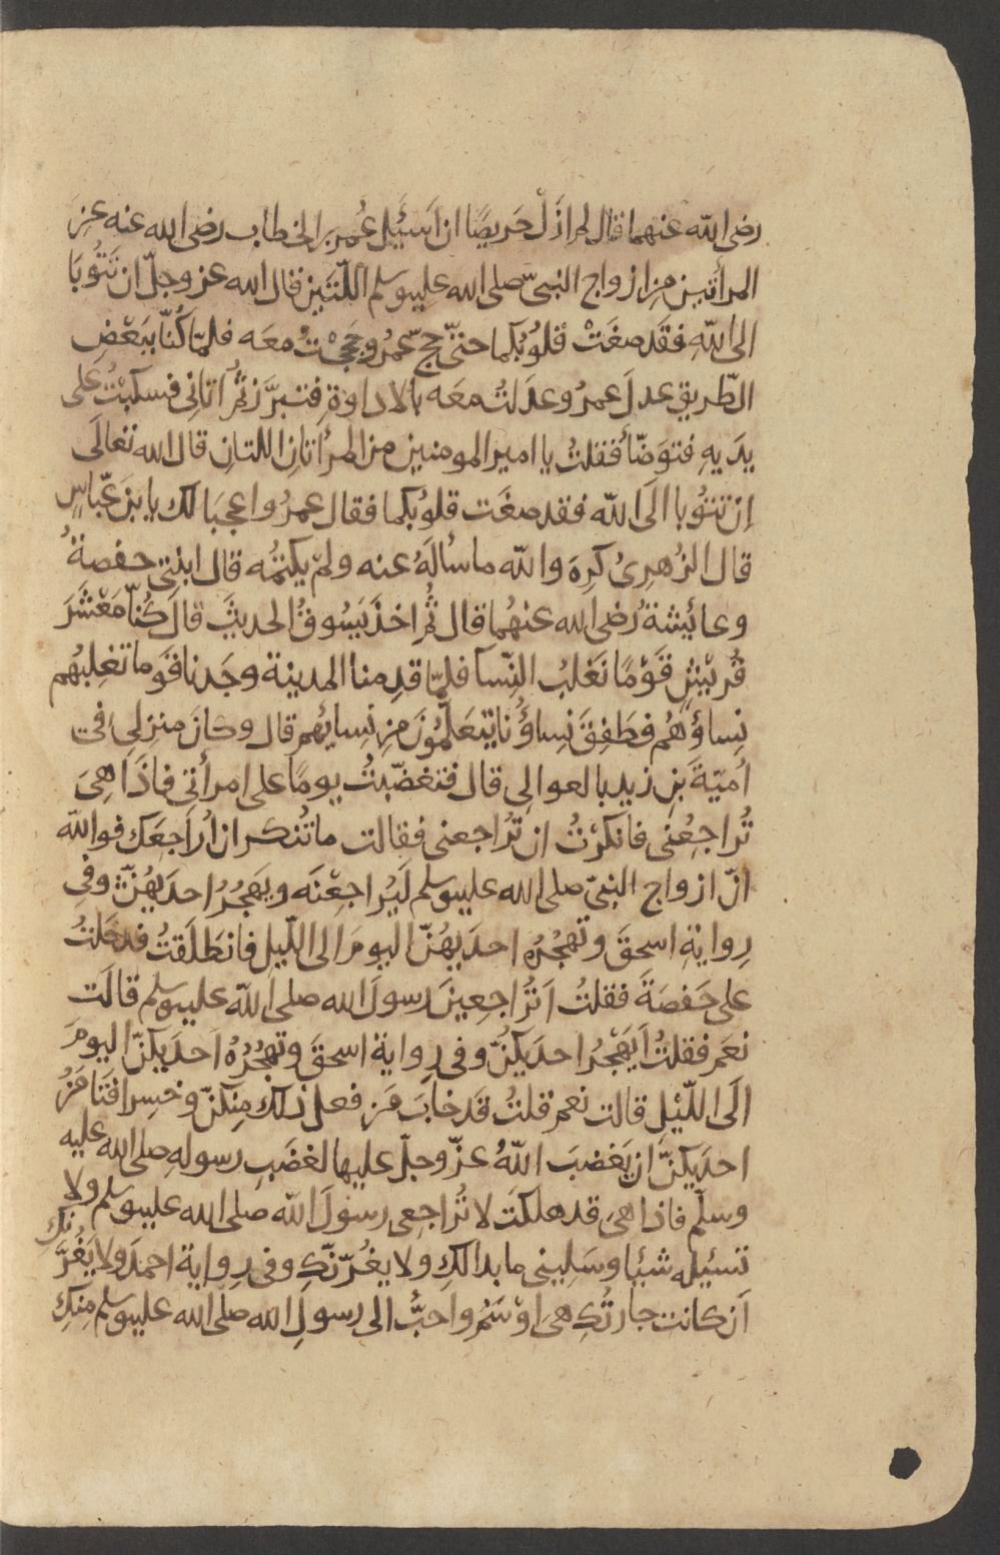 رضى الله عنهما قال لم ازَلْ حَريصًا ان اَسئَيلَ عُمر بن الخطاب رضى الله عنه عن
المرأتين مِن ازواج النبىّ صلى الله عليه وسلم اللّتَين قال الله عز وجلّ ان تَتُوبَا
الى اللهِ فقَد صغَتْ قلوُبُكما حتىّ حجّ عمرُ وحَجَجْتُ معَه فلمّا كُنّا ببَعْضِ
الطّريق عدلَ عمرُ وعدَلتُ معَه بالاداوةِ فتبرَّز ثمَّ اتانِى فسكبْتُ على
يدَيهِ فتوَضّأ فقلتُ يا امير المومنين من المرأتانِ اللتانِ قال الله تعالَى
اِن تتوُبا الَى اللّه فقد صغَت قلوُبكما فقال عمرُ واعجبَا لك يا بنَ عبّاسٍ
قال الزُهرِىُ كرِهَ واللّه ما سألَهُ عنه ولمْ يكتمْه قال ابنتى حفصةُ
وعائيشةُ رضى الله عنهُما قال ثُم اخذَ يَسُوقُ الحديثَ قالَ كُنّا مَعْشَرَ
قُريْشٍ قَوْمًا نَغلبُ النِّسآ فلمّا قدِمنا المدينة وجَدنا قَوما تغلِبُهم
نِساؤُهُم فطَفِقَ نِساؤُنا يتعَلَّمْونَ مِن نِسايهُم قال وكانَ منزلى فى
اُميّةَ بنِ زيد بالعوالِى قال فتغضّبتُ يومًا على امرأتى فاذَا هِىَ
تُراجعُنى فانكرْتُ ان تُراجعنى فقالت ماتُنكر ان اُراجعَك فوالله
انّ ازواج النبىّ صلى الله عليه وسلم لَيُراجعْنَه ويَهجُرُ احدَيهُنّ وفِى
رِوايةِ اسحقَ وتهْجُرُه احدَيهُنّ اليومَ الى اللّيل فانطَلَقتُ فدخَلتُ
على حَفصَةَ فقلتُ اَتُراجعِينَ رسولَ الله صلى الله عليه وسلم قالَت
نعَم فقلتُ اَيَهْجُرُ احدَيكنّ وفى رواية اسحقَ وتهجُرُهُ اَحدَيكنّ اليومَ
الَى اللّيْل قالت نعم قلتُ قَد خابَ مَن فعل ذلك مِنكنّ وخسِر افَتَامَنُ
احدَيكنّ ان يَغضبَ اللّهُ عزّ وجلّ عليها لغضَبِ رسولهِ صلى الله عليه
وسلّم فاذا هىَ قد هلكَت لا تُراجعى رسولَ اللّه صلى الله عليه وسلم ولا
تسئيله شيْا وسَلِينى ما بدالكِ ولا يغُرّنّكِ وفى رِواية احمدَ ولا يَغُرَّنكِ
اَن كانت جارتُكِ هى اوْسَمُ واحبُّ الى رسولِ الله صلّى الله عليه وسلم مِنكِ